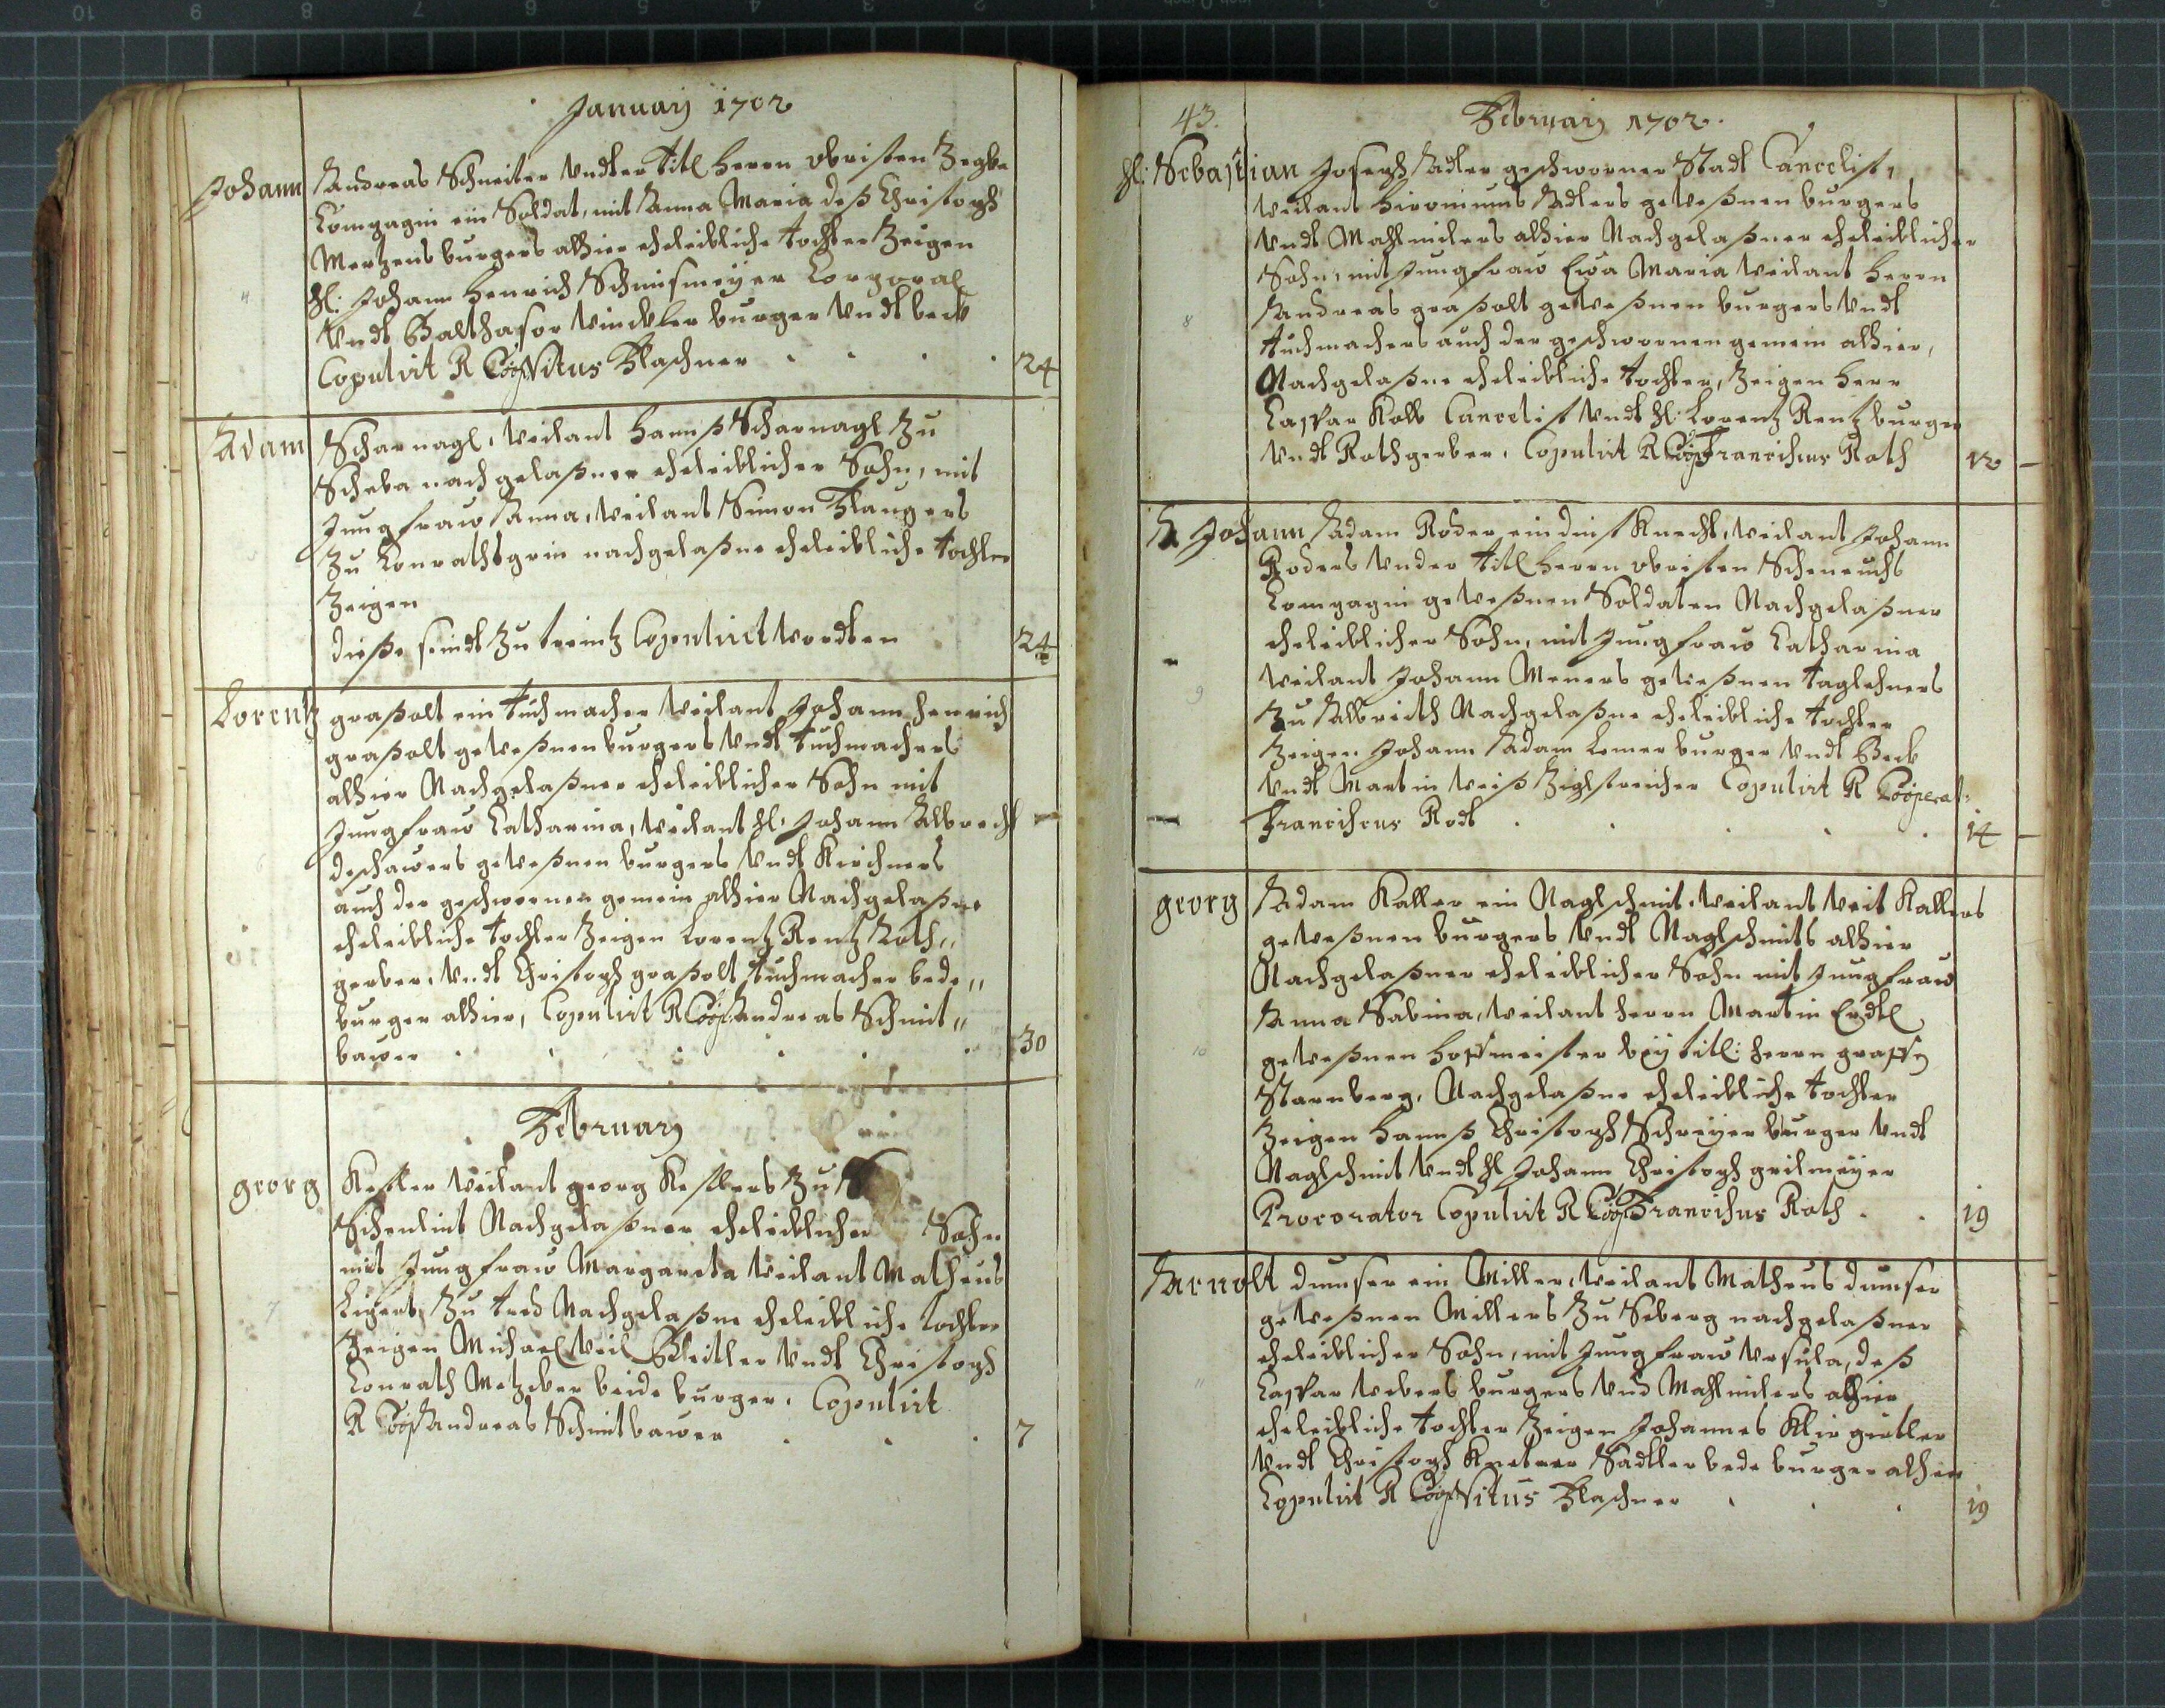 Januarij 1702
Johann Andreas Schneider Undter Titl Herrn Obristen
Compagni ein Soldat, mit Anna Maria deß Christoph
Mertzens burgers alhier eheleibliche Tochter Zeigen
Hl: Johann Henrich Schmismeÿer Corporal
Undt Balthasar Winckler burger Undt beck
Copulirt R Coop Vitus Plachner 24
Adam Scharnagl, weilant Hannß Scharnagl Zu
Scheba nachgelaßner eheleiblicher Sohn, mit
Jungfraw Anna, weilant Simon Plaugers
Zu Conrathsgrin nachgelaßne eheleibliche Tochter
Zeigen
dieße seindt Zu Copulirt wordten 24
Lorentz graßolt ein Tuchmacher weilant Johann Henrich
graßolt geweßnen burgers Undt Tuchmachers
alhier Nachgelaßner eheleiblicher Sohn mit
Jungfraw Catharina, weilant Hl: Johann Albrecht
geweßnen burgers Undt Kirchners
auch der geschwornen gemein alhier Nachgelaßne
eheleibliche Tochter Zeigen Lorentz Rentz Roth,,
gerber, Undt Christoph graßolt Tuchmacher bede,,
burger alhier, Copulirt R Coop: Andreas Schmit,,
bawer 30
Februarj
georg Kestler weilant georg Kestlers Zu
Sichenlint Nachgelaßner eheleiblicher Sohn
mit Jungfraw Margareta weilant Matheus
Zu Nachgelaßne eheleibliche Tochter
Zeigen Michael Undt Christoph
Conrath Metzcker beide burger. Copulirt
R Coop Andreas Schmitbawer 7
43.
Februarj 1702.
Hl: Sebastian Joseph Adler geschworner Stadt Cancelist,
weilant Hironimus Adlers geweßnen burgers
Undt Mahlmilers alhier Nachgelaßner eheleiblicher
Sohn, mit Jungfraw Eva Maria weilant Herrn
8 Andreas graßolt geweßnen burgers Undt
Tuchmachers auch der geschwornen gemein alhier,
Nachgelaßne eheleibliche Tochter, Zeigen Herr
Caspar Kolb Cancelist Undt Hl: Lorentz Rentz burger
Undt Rothgerber. Copulirt R Coop Franciscus Roth 12
Johann Adam Roder ein dinst Knecht, weilant Johann
Roders Under Titl Herrn Obristen
Compagni geweßnen Soldaten Nachgelaßner
eheleiblicher Sohn, mit Jungfraw Catharina
9 weilant Johann Meners geweßnen Taglehners
Zu Albrieth Nachgelaßne eheleibliche Tochter
Zeigen Johann Adam Lemer burger Undt Beck
Undt Martin Weiß Ziglstreicher Copulirt R Cooperat:
Franciscus Rodt 14
georg Adam Kaller ein Naglschmit, weilant Veit Kallers
geweßnen burgers Undt Naglschmits alhier
Nachgelaßner eheleiblicher Sohn mit Jungfraw
Anna Sabina, weilant Herrn Martin Erdtl
10 geweßnen Hoffmeister beÿ titl: Herrn graffen
Starnberg, Nachgelaßne eheleibliche Tochter
Zeigen Hannß Christoph Schreÿer burger Undt
Naglschmit Undt Hl Johann Christoph geilmeÿer
Procorator Copulirt R Coop Franciscus Roth 19
Arnolt dumser ein Miller, weilant Matheus dumser
geweßnen Millers Zu Seberg nachgelaßner
eheleiblicher Sohn, mit Jungfraw Ursula, deß
11 Caspar Webers burgers Und Mahlmilers alhier
eheleibliche Tochter Zeigen Johannes Klir girtler
Undt Christoph Knetner Sadtler bede burger alhier
Copulirt R Coop Vitus Plachner 19